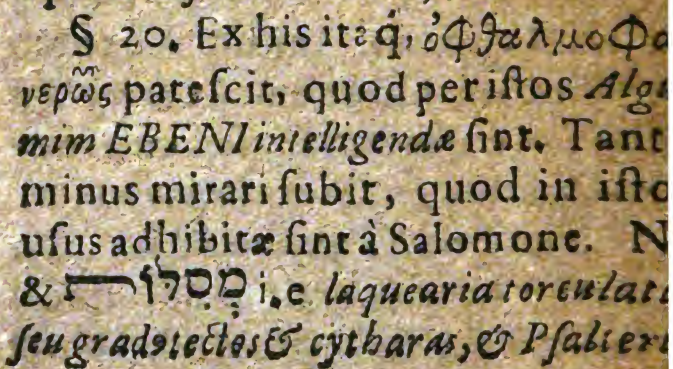 § 20. Ex his itaq́, ὀφθαλμοφα
νερῶς pateſcit, quod per iſtos Algu
mim EBENI intelligendæ ſint. Tant
minus mirari ſubit, quod in iſto
uſus adhibitæ ſint à Salomone. N
& מְסִלּוֹת i.e laquearia torculat
ſeu gradꝰ tectos & cytharas, & Pſalteri